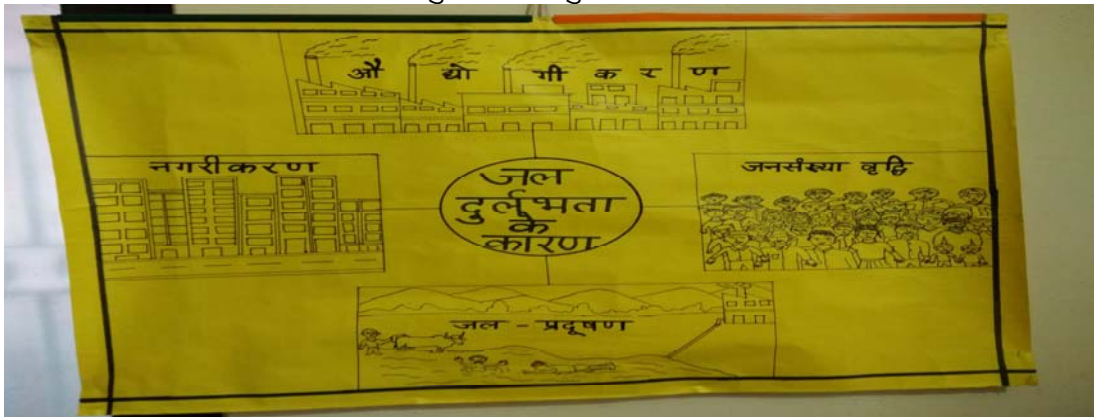 औद्योगीकरण
नगरीकरण
जल
दुर्लभता
के
कारण
जनसंख्या वृद्धि
जल - प्रदूषण